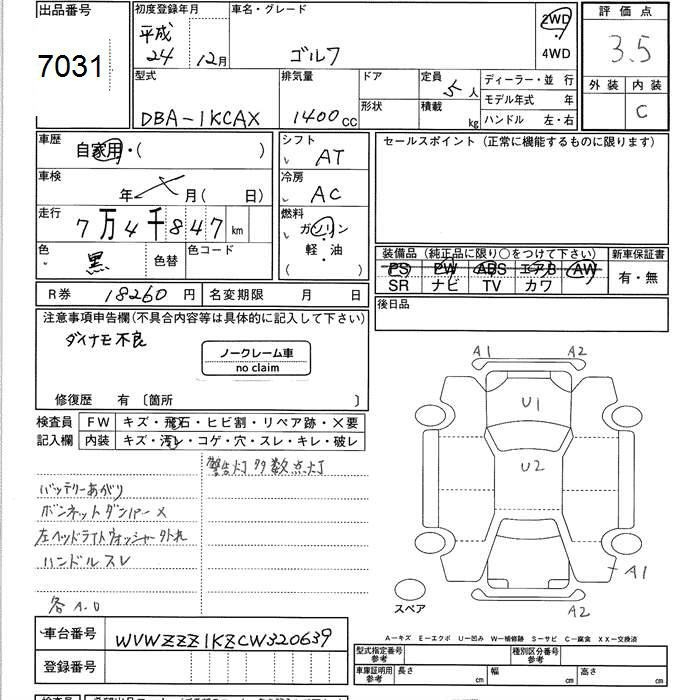 出品番号
7031
初度登録年月
平成
24 12月
車名・グレード
ゴルフ
2WD
4WD
評価点
3.5
外装 内装
C
型式
DBA-1KCAX
排気量
1400cc
ドア
形状
定員
5人
積載
kg
ディーラー・並行
モデル年式 年
ハンドル 左・右
車歴
自家用・( )
車検
年 月( 日)
走行
7万4千847km
色
黒
色替
色コード
シフト
AT
冷房
AC
燃料
ガソリン
軽・油
( )
セールスポイント(正常に機能するものに限ります)
装備品(純正品に限り○をつけて下さい)
PS PW ABS エアB AW
SR ナビ TV カワ
新車保証書
有・無
R券 18260円
名変期限 月 日
後日品
注意事項申告欄(不具合内容等は具体的に記入して下さい)
ダイナモ不良
ノークレーム車
no claim
修復歴 有〔箇所 〕
検査員
記入欄
FW キズ・飛石・ヒビ割・リペア跡・×要
内装 キズ・汚レ・コゲ・穴・スレ・キレ・破レ
警告灯多数点灯
バッテリーあがり
ボンネットダンパー×
左ヘッドライトウォッシャー外れ
ハンドルスレ
各A.U
A1 A2
U1
U2
A1
A2
スペア
車台番号
WVWZZZ1KZCW320639
登録番号
A-キズ E-エクボ U-凹み W-補修跡 S-サビ C-腐食 XX-交換済
型式指定番号
参考
種別区分番号
参考
車庫証明用
参考
長さ cm 幅 cm 高さ cm